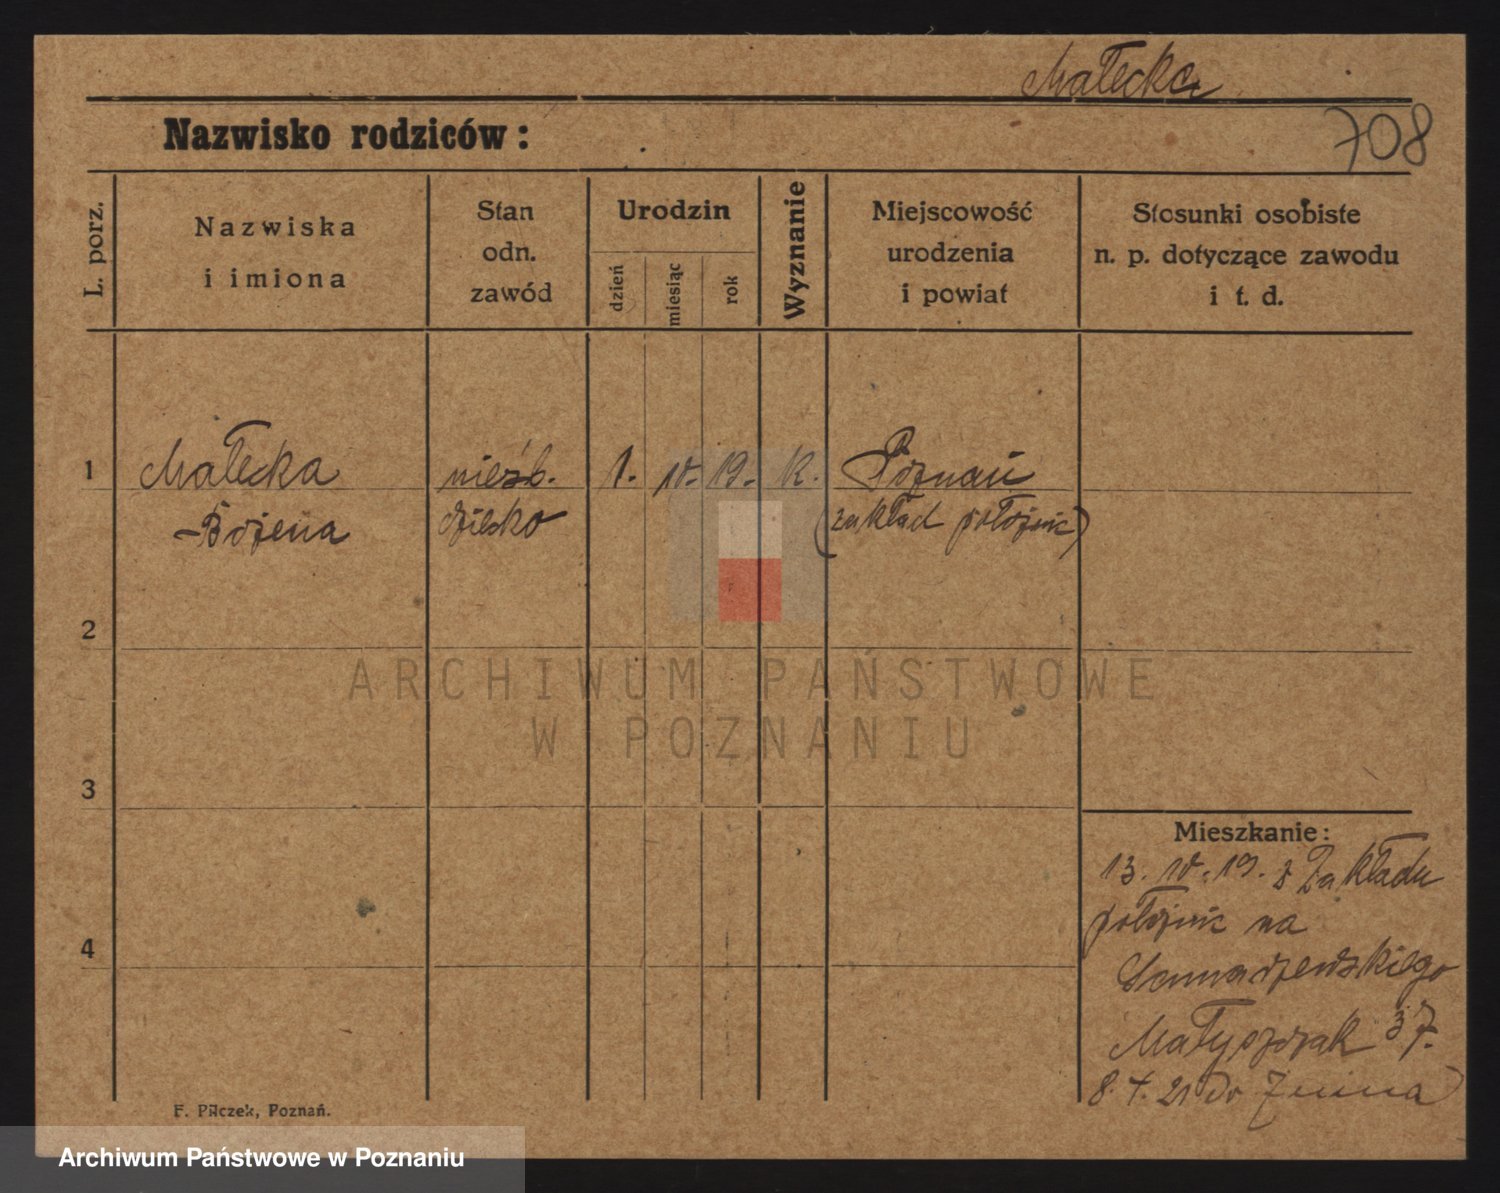 Małecka
708
Nazwisko rodziców:
L. porz.
Nazwiska
i imiona
Stan
odn.
zawód
Urodzin
dzień
miesiąc
rok
Wyznanie
Miejscowość
urodzenia
i powiat
Stosunki osobiste
n. p. dotyczące zawodu
i t. d.
1 Małecka nieśb. 1. 10. 19. K. Poznań
Bożena dziecko (zakład położnic)
2
ARCHIWUM PAŃSTWOWE
W POZNANIU
3
Mieszkanie:
13. 10. 19. z Zakładu
położnic na
4
Małyszczak 37.
8. 4. 21 do Żnina
F. Pilczek, Poznań.
Archiwum Państwowe w Poznaniu